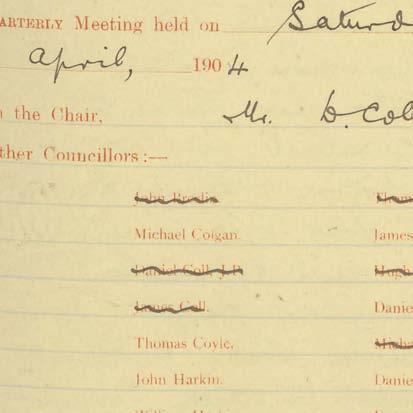 ARTERLY Meeting held on Saturd
April, 1904
the Chair, Mr. D. Col
ther Councillors :—
John Brodie
Michael Colgan. James
Daniel Coll, J.P. Hugh
James Coll.
Thomas Coyle. Danie
John Harkin. Danie